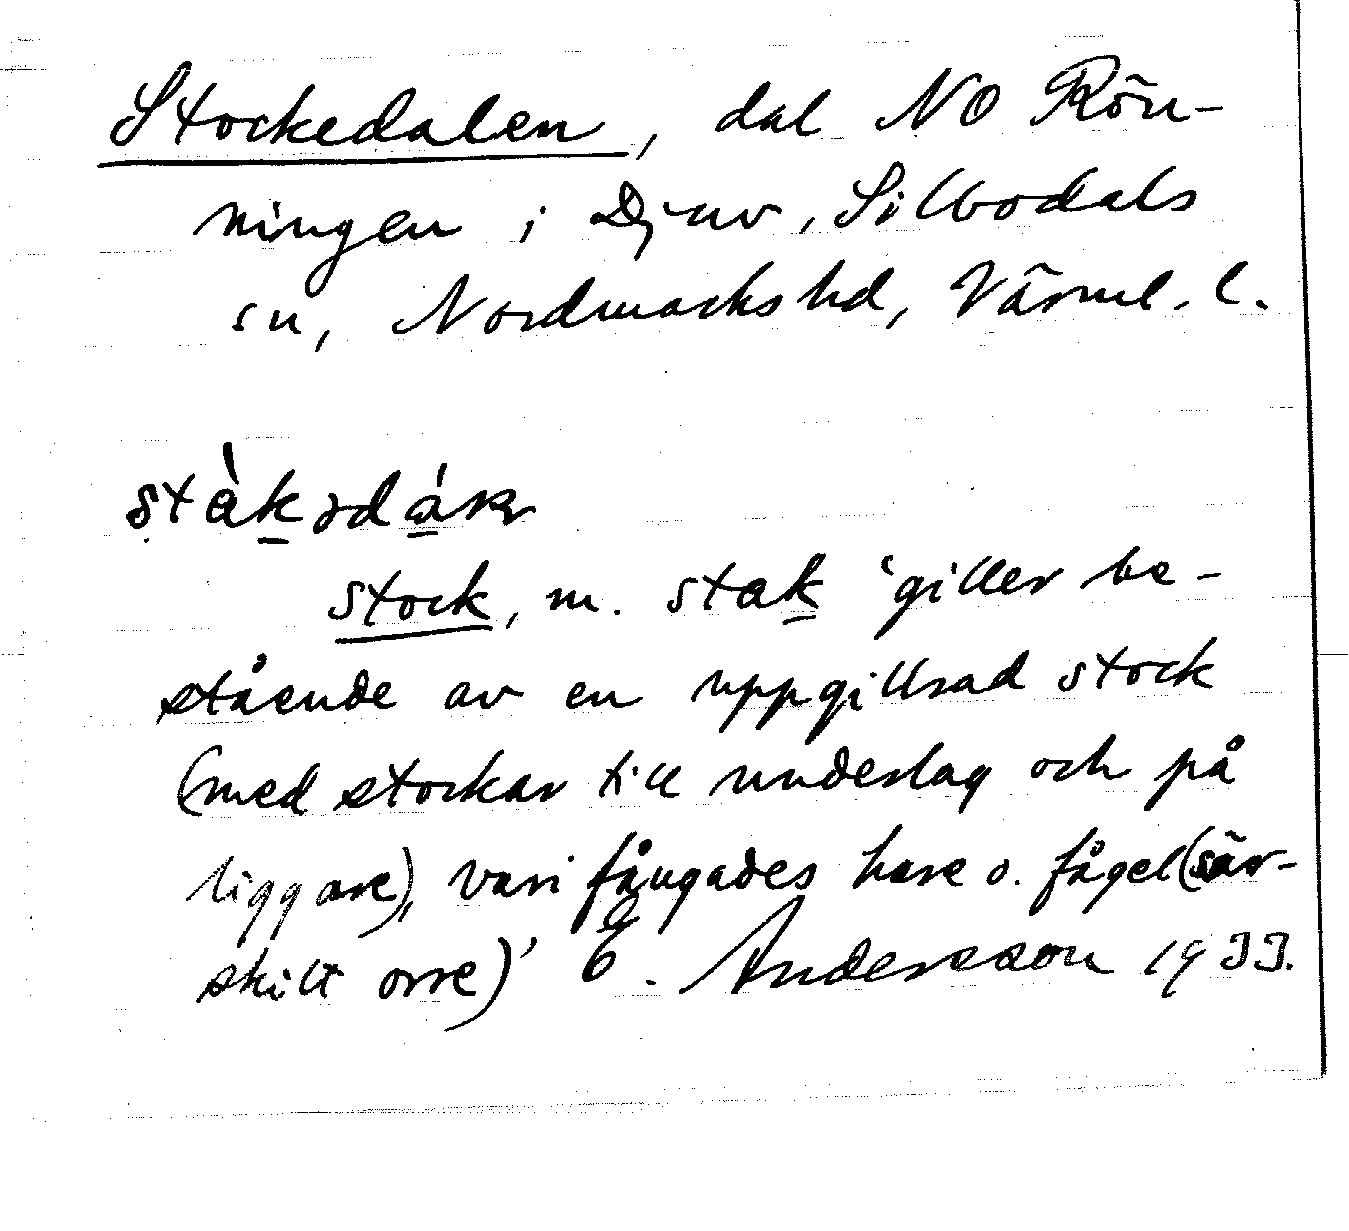 Stockedalen, dal NO Rön-
ningen i Djuv, Silbodals
sn, Nordmarks hd, Värml. l.
stàkədákɴ
stock, m. stak 'giller be-
stående av en uppgillrad stock
(med stockar till underlag och på
liggare), vari fångades hare o. fågel (sär-
skilt orre)' E. Andersson 1933.